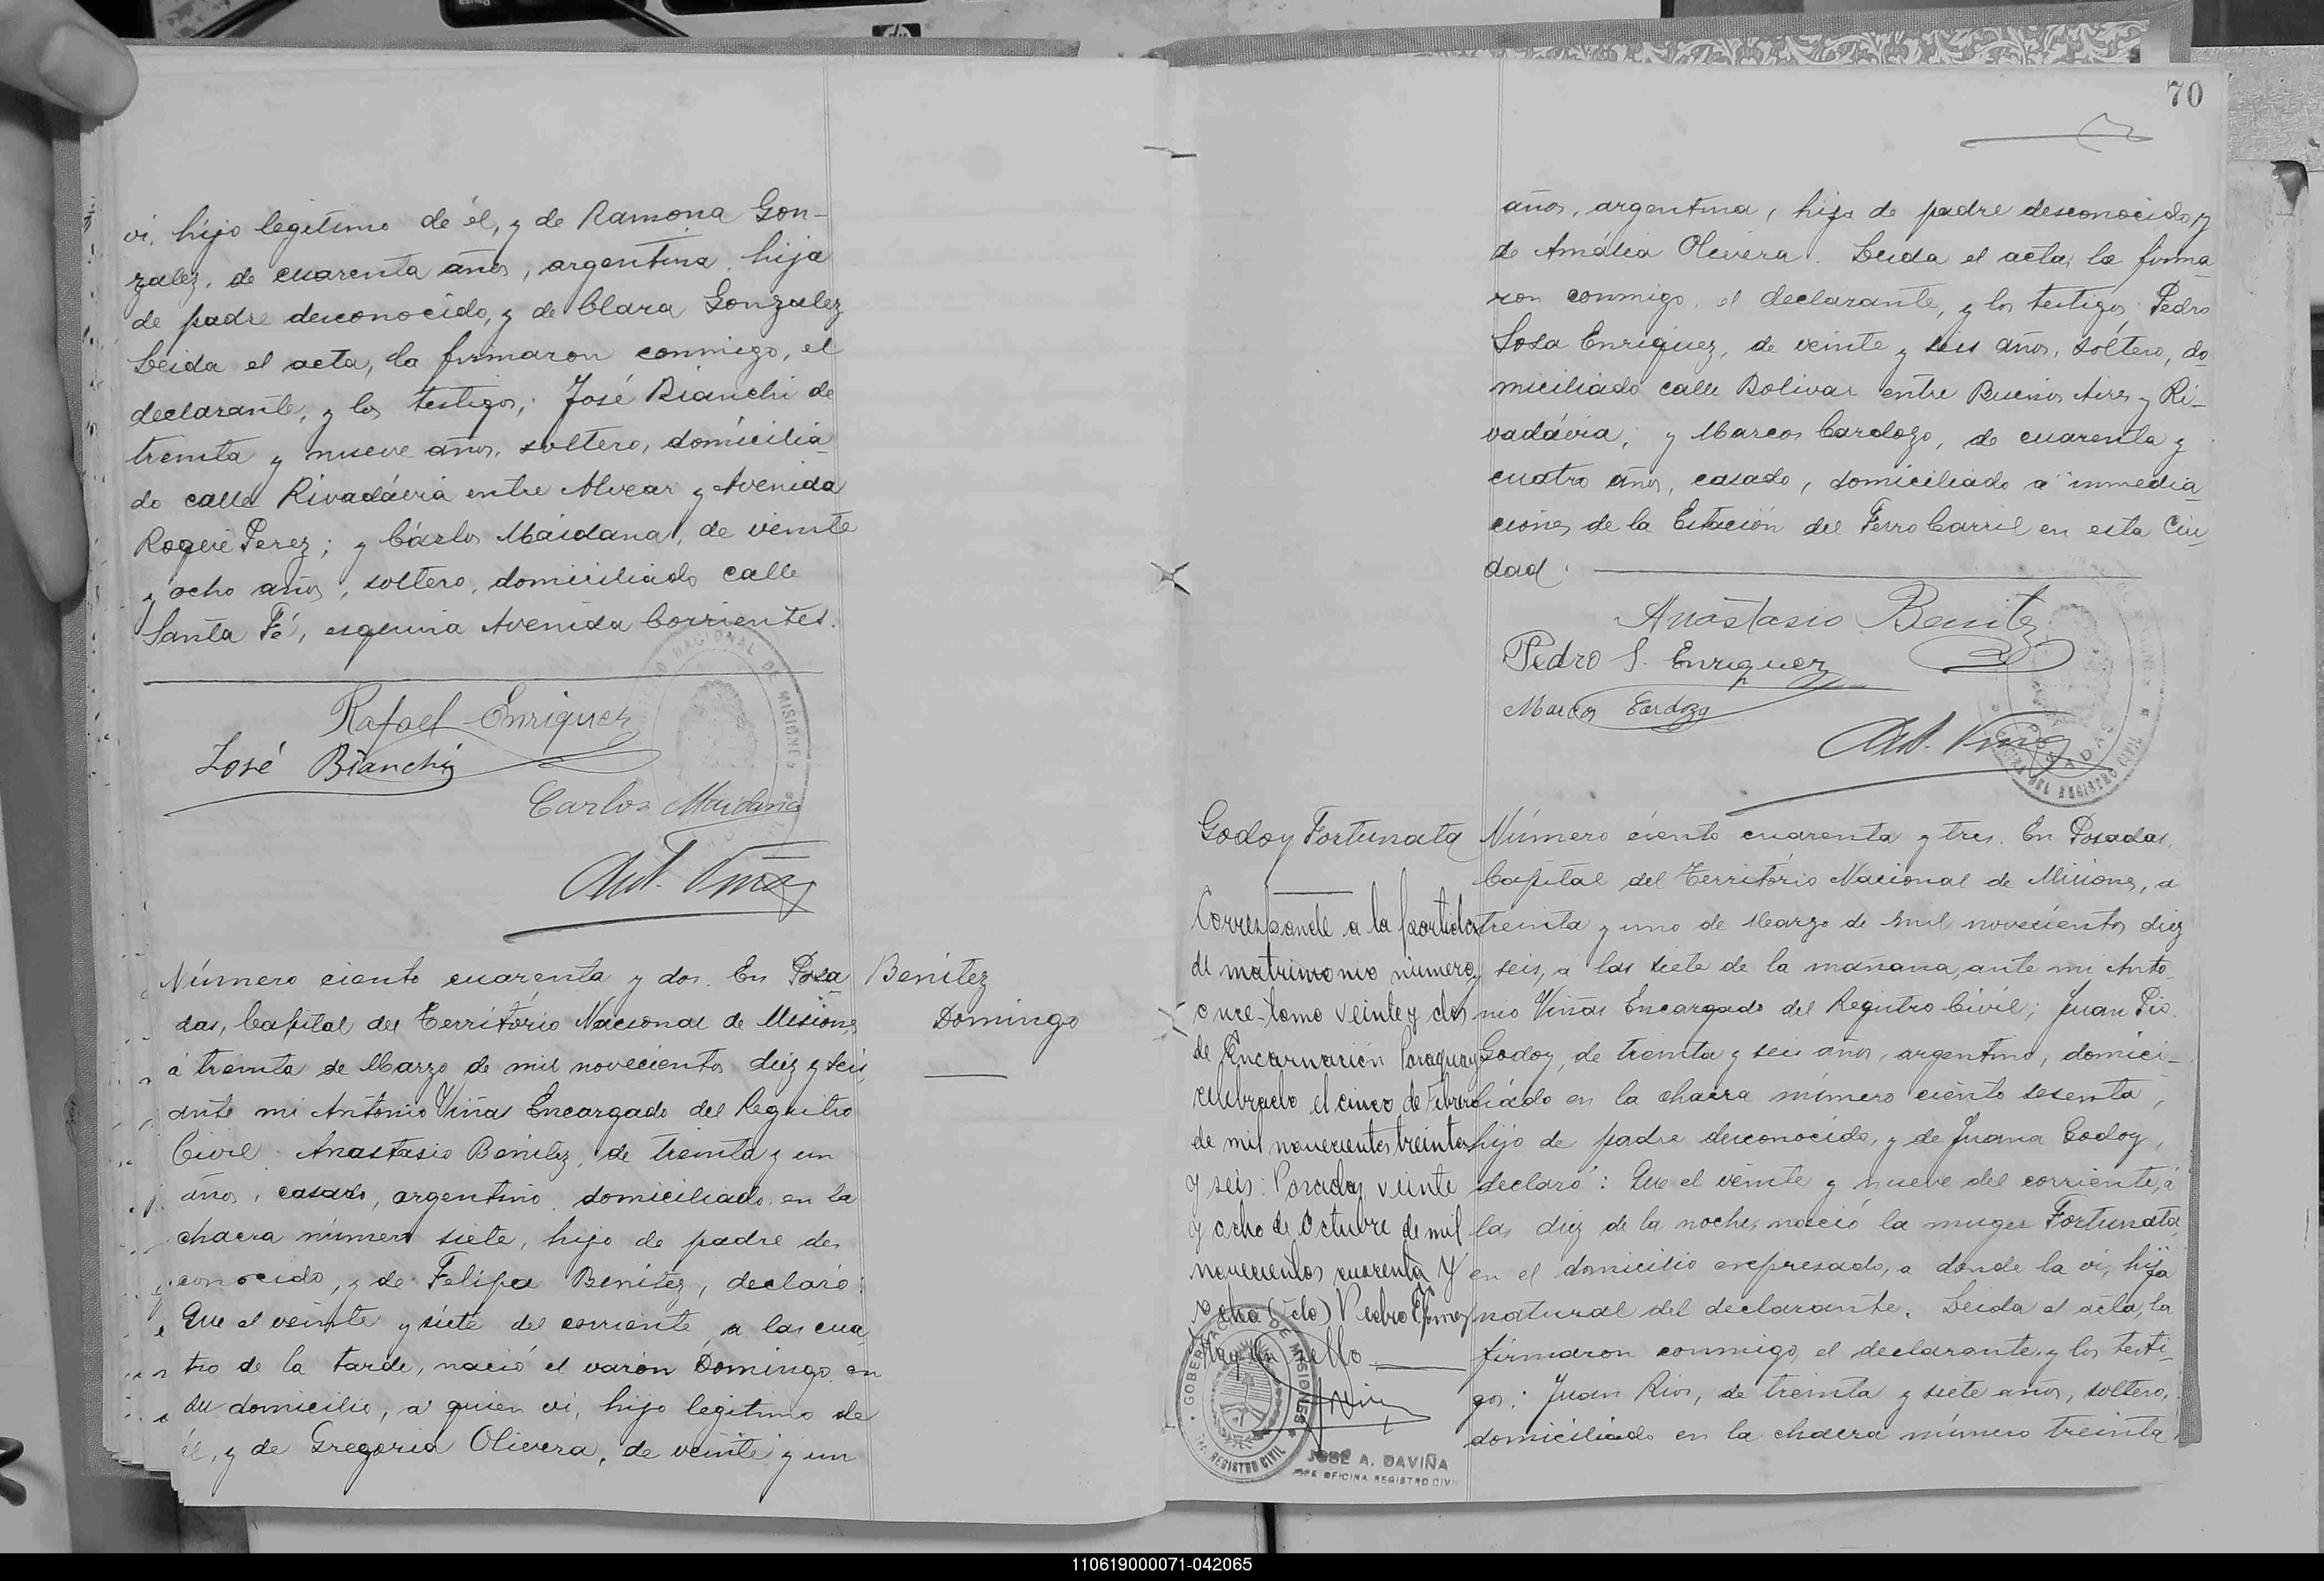 vi, hijo legitimo de él, y de Ramona Gon-
zalez, de cuarenta años, argentina, hija
de padre desconocido, y de Clara Gonzalez
Leida el acta, la firmaron conmigo, el
declarante, y los testigos; José Bianchi de
treinta y nueve años, soltero, domicilia-
do calle Rivadávia entre Alvear y Avenida
Roque Perez; y Cárlos Maidana, de veinte
y ocho años, soltero, domiciliado calle
Santa Fé, esquina Avenida Corrientes.
Rafael Enriquez
José Bianchi
Carlos Maidana
Ant. Viñas
Número ciento cuarenta y dos. En Posa-
das, Capital del Território Nacional de Misiones
á treinta de Marzo de mil novecientos diez y seis,
ante mi Antonio Viñas Encargado del Registro
Civil. Anastasio Benitez, de treinta y un
años, casado, argentino, domiciliado en la
chacra número siete, hijo de padre des
conocido, y de Felipa Benitez, declaró:
Que el veinte y siete del corriente, a las cua-
tro de la tarde, nació el varón Domingo, en
su domicilio, a quien vi, hijo legitimo de
él, y de Gregoria Olivera, de veinte y un
Benítez
Domingo
70
años, argentina, hija de padre desconocido, y
de Amália Olivera. Leida el acta, la firma-
ron conmigo, el declarante, y los testigos, Pedro
Sosa Enriquez, de veinte y seis años, soltero, do-
miciliado calle Bolivar entre Buenos Aires y Ri-
vadávia; y Marcos Cardozo, de cuarenta y
cuatro años, casado, domiciliado a inmedia-
ciones de la Estación del Ferro Carril en esta Ciu-
dad.
Anastasio Benitez
Pedro S. Enriquez
Marcos Cardozo
Ant. Viñas
Godoy Fortunata
Corresponde a la partida
de matrimonio número
once tomo veinte y dos
de Encarnación Paraguay
celebrado el cinco de Febrero
de mil novecientos treinta
y seis. Posadas, veinte
y ocho de Octubre de mil
novecientos cuarenta y
ocho (fdo) Pedro Gomez
Hay un sello
GOBERNACION DE MISIONES
REGISTRO CIVIL
JOSÉ A. DAVIÑA
JEFE OFICINA REGISTRO CIVIL
Número ciento cuarenta y tres. En Posadas,
Capital del Território Nacional de Misiones, a
treinta y uno de Marzo de mil novecientos diez
y seis, á las siete de la mañana, ante mi Anto-
nio Viñas Encargado del Registro Civil; Juan Pio
Godoy, de treinta y seis años, argentino, domici-
liádo en la chacra número ciento sesenta,
hijo de padre desconocido, y de Juana Godoy,
declaró: Que el veinte y nueve del corriente, á
las diez de la noche, nació la muger Fortunata,
en el domicilio expresado, a donde la vi, hija
natural del declarante. Leida el acta, la
firmaron conmigo, el declarante, y los testi-
gos: Juan Rios, de treinta y siete años, soltero,
domiciliado en la chacra número treinta,
110619000071-042065